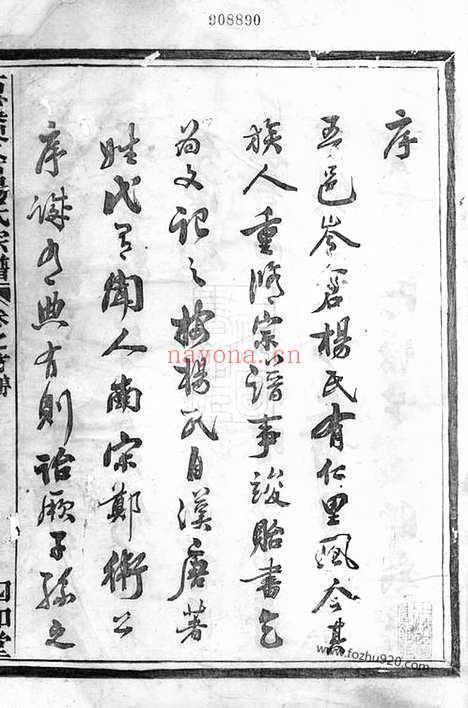 908890
序
吾邑岑倉楊氏有仁里風今其
族人重修宗譜事竣貽書乞
為文記之按楊氏自漢唐著
姓代有聞人南宋鄭衛公
序謂有典有則詒厥子孫之
楊氏宗譜
四知堂
nayona.cn
www.fozhu920.com